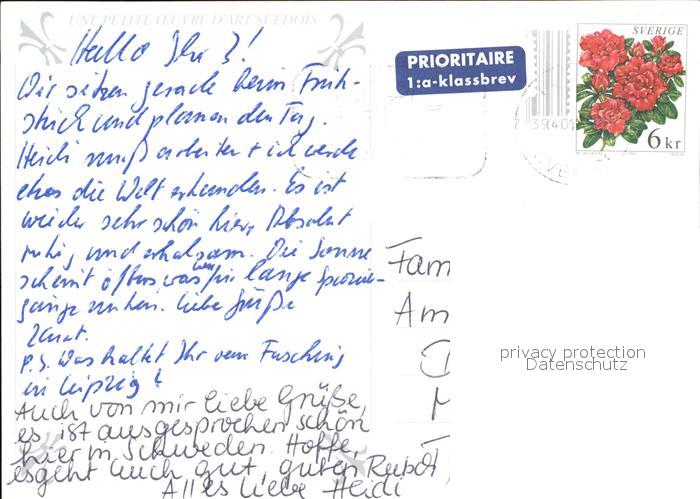 UNE PETITE ŒUVRE D'ART SUÉDOIS
Hallo Ihr 3!
Wir sitzen gerade beim Früh-
stück und planen den Tag.
Heidi muß arbeiten + ich werde
etwas die Welt erkunden. Es ist
wieder sehr schön hier, Absolut
ruhig und erholsam. Die Sonne
scheint öfters was für lange Spazier-
gänge nutzen. Liebe Grüße
P.S. Was haltet Ihr vom Fasching
in Leipzig?
Auch von mir liebe Grüße,
es ist ausgesprochen schön
hier in Schweden. Hoffe,
es geht euch gut, guten Rutsch
Alles Liebe Heidi
PRIORITAIRE
1:a-klassbrev
SVERIGE
6 kr
Fam
Am
privacy protection
Datenschutz